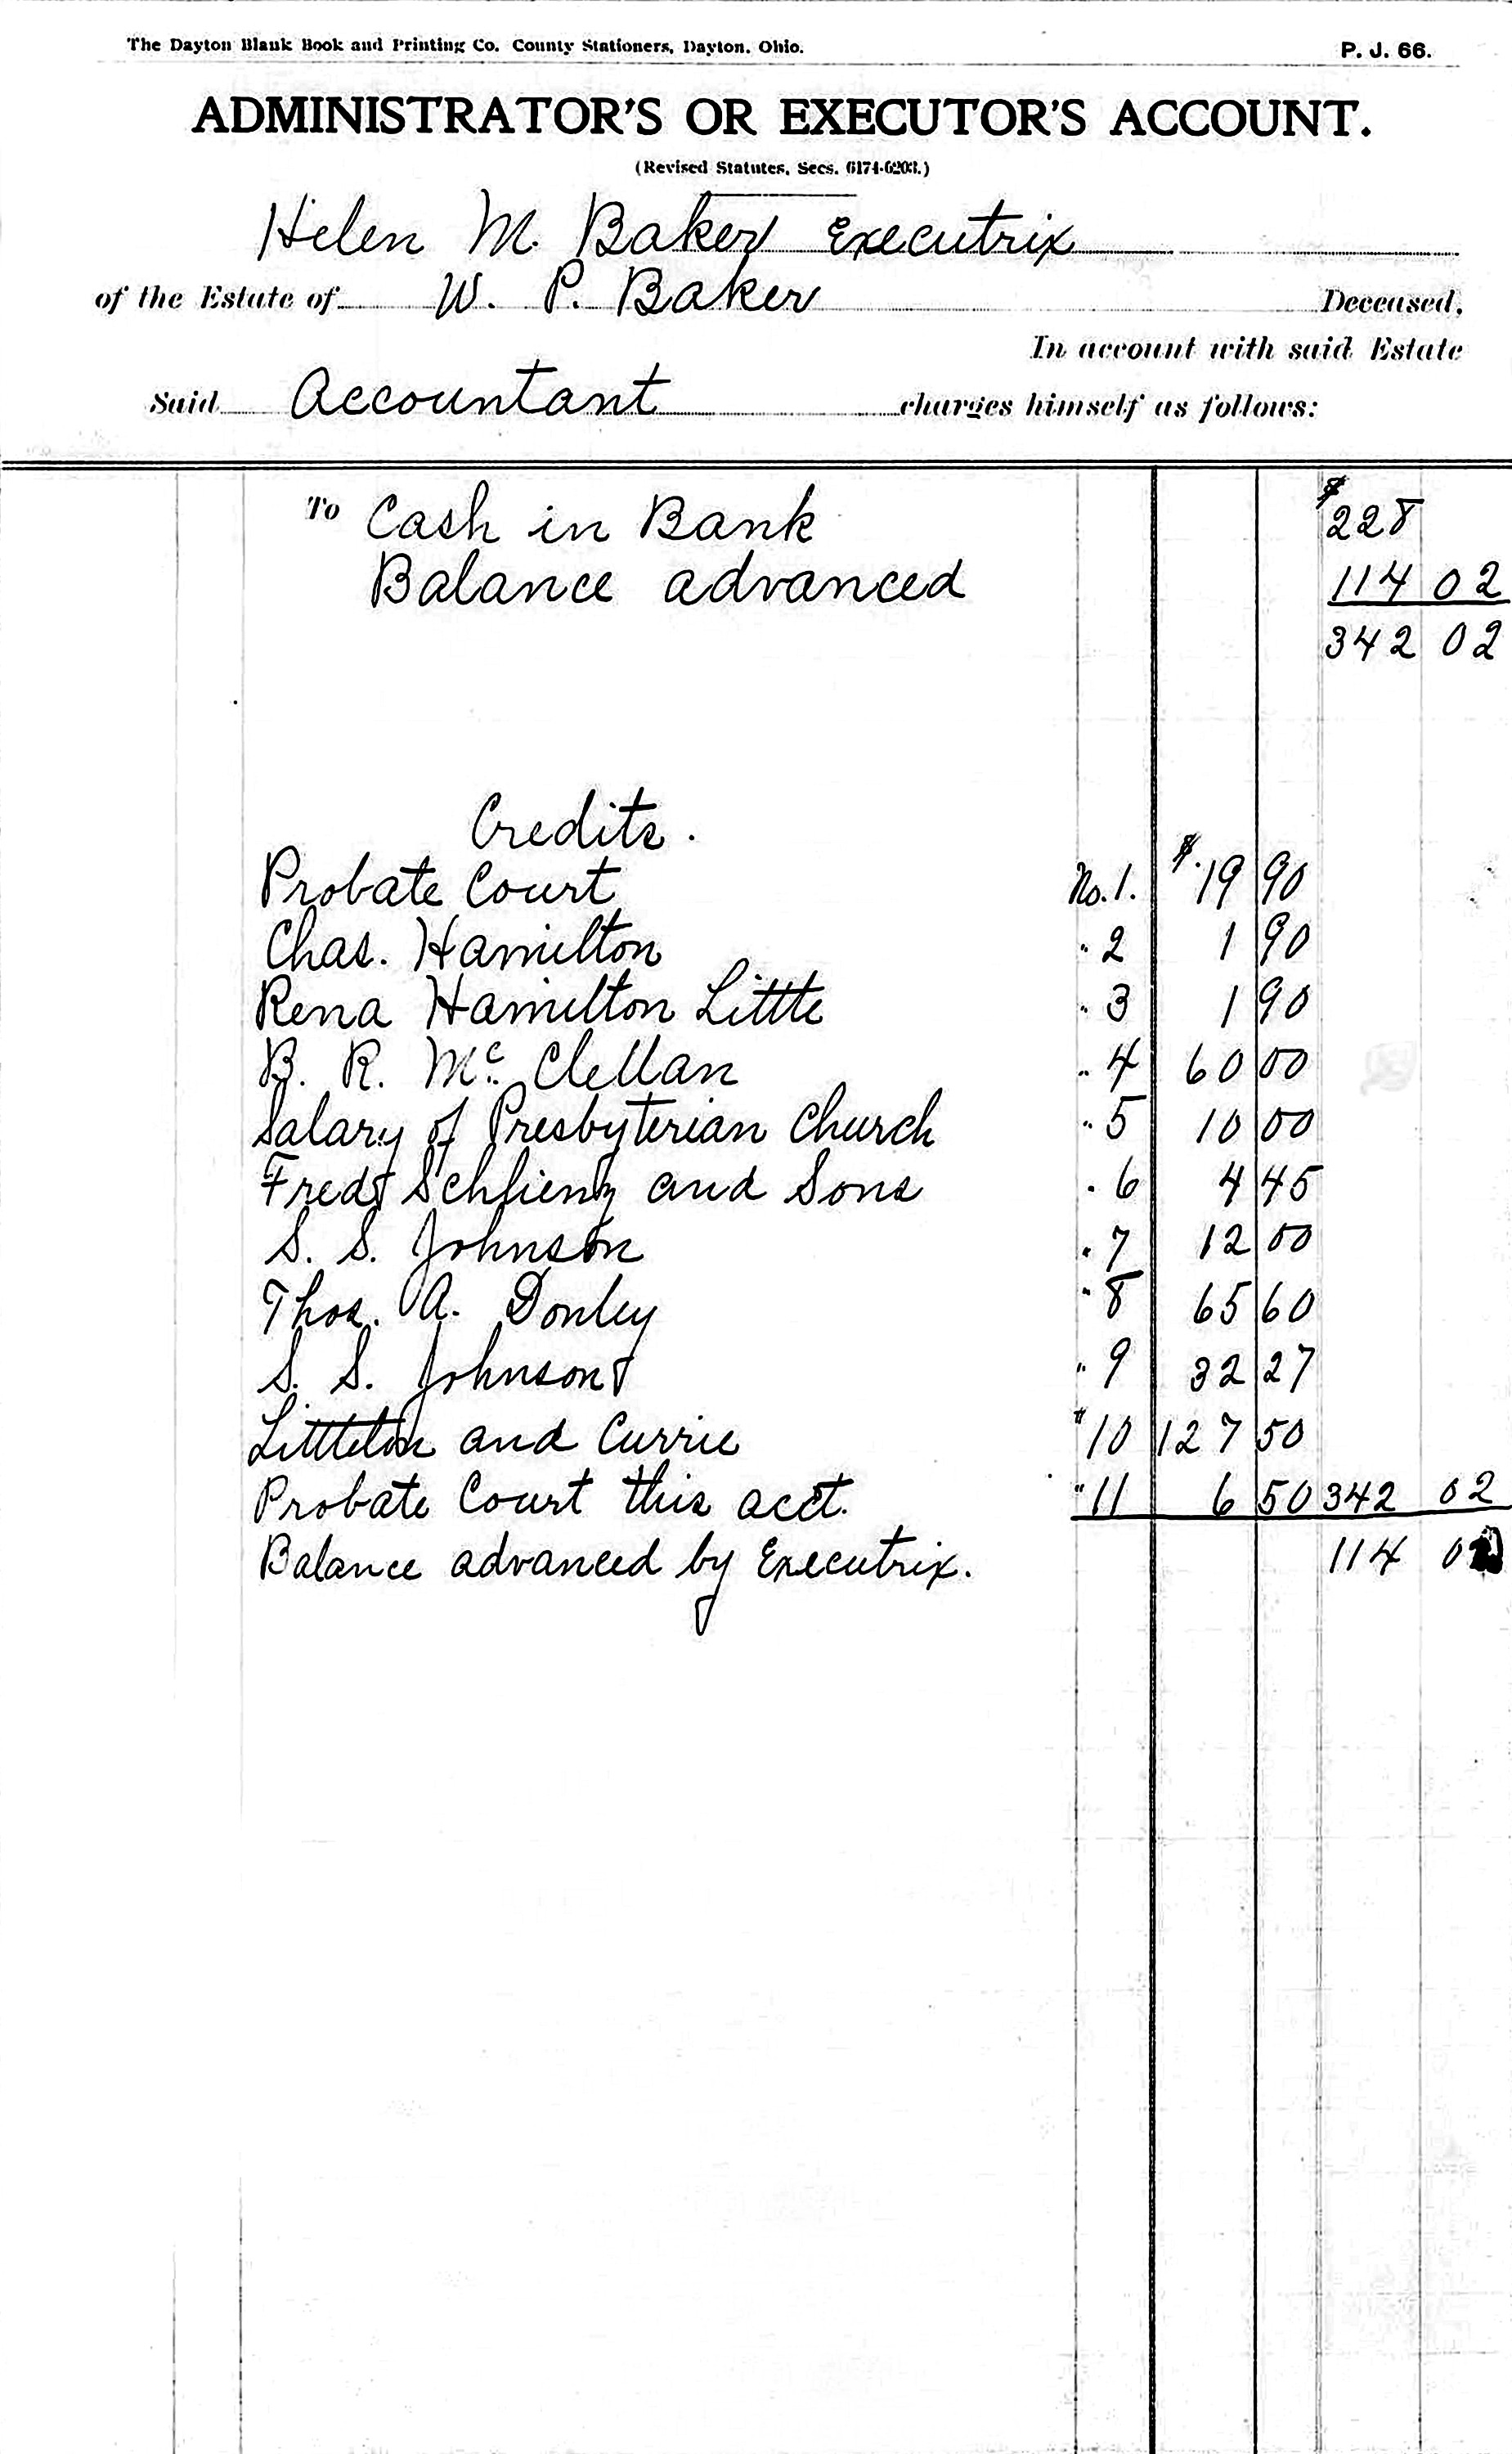 The Dayton Blank Book and Printing Co. County Stationers, Dayton, Ohio. P. J. 66.
ADMINISTRATOR'S OR EXECUTOR'S ACCOUNT.
(Revised Statutes, Secs. 6174-6203.)
Helen M. Baker Executrix
of the Estate of W. P. Baker Deceased,
In account with said Estate
Said Accountant charges himself as follows:
To Cash in Bank $228
Balance advanced 114 02
342 02
Credits.
Probate Court No. 1. $. 19 90
Chas. Hamilton " 2 1 90
Rena Hamilton Little " 3 1 90
B. R. Mc. Clellan " 4 60 00
Salary of Presbyterian Church " 5 10 00
Schlientz and Sons " 6 4 45
S. S. Johnson " 7 12 00
Thos. A. Donley " 8 65 60
S. S. Johnson " 9 32 27
Littleton and Currie " 10 127 50
Probate Court this acct. " 11 6 50 342 02
Balance advanced by Executrix. 114